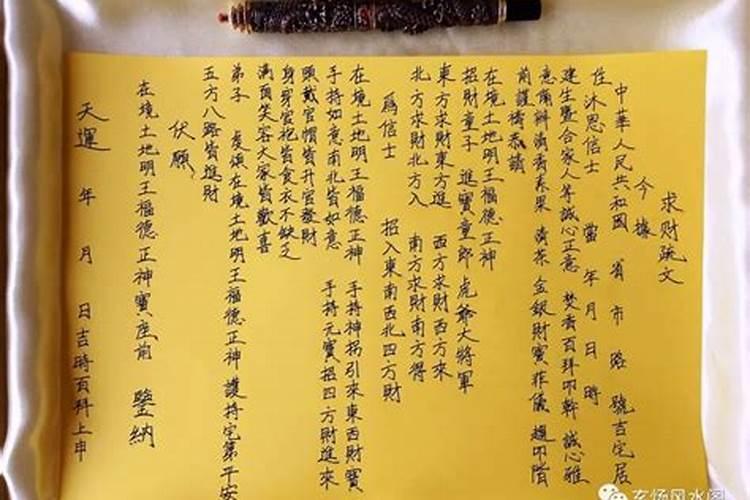 求財疏文
今據
中華人民共和國 省 市 路 號吉宅居
住 沐恩信士 當年 月 日 時
建生暨合家人等誠心正意 焚香百拜叩幹 誠心雅
意備辦清香春果 清茶 金銀財寶菲儀 趨叩階
前護禱恭請
在境土地明王福德正神
招財童子 進寶童郎 虎爺大將軍
東方求財東方進 西方求財西方來
北方求財北方入 南方求財南方得
為信士 招入東南西北四方財
在境土地明王福德正神 手持神拐引來東西財寶
手持如意南北皆如意 手持元寶招四方財進來
頭戴官帽皆升官發財
身穿官袍皆食衣不缺乏
滿面笑容大家皆歡喜
弟子 虔頌在境土地明王福德正神 護持宅第平安
五方八路皆進財
伏願
在境土地明王福德正神寶座前 鑒納
天運 年 月 日吉時百拜上申
玄场风水阁